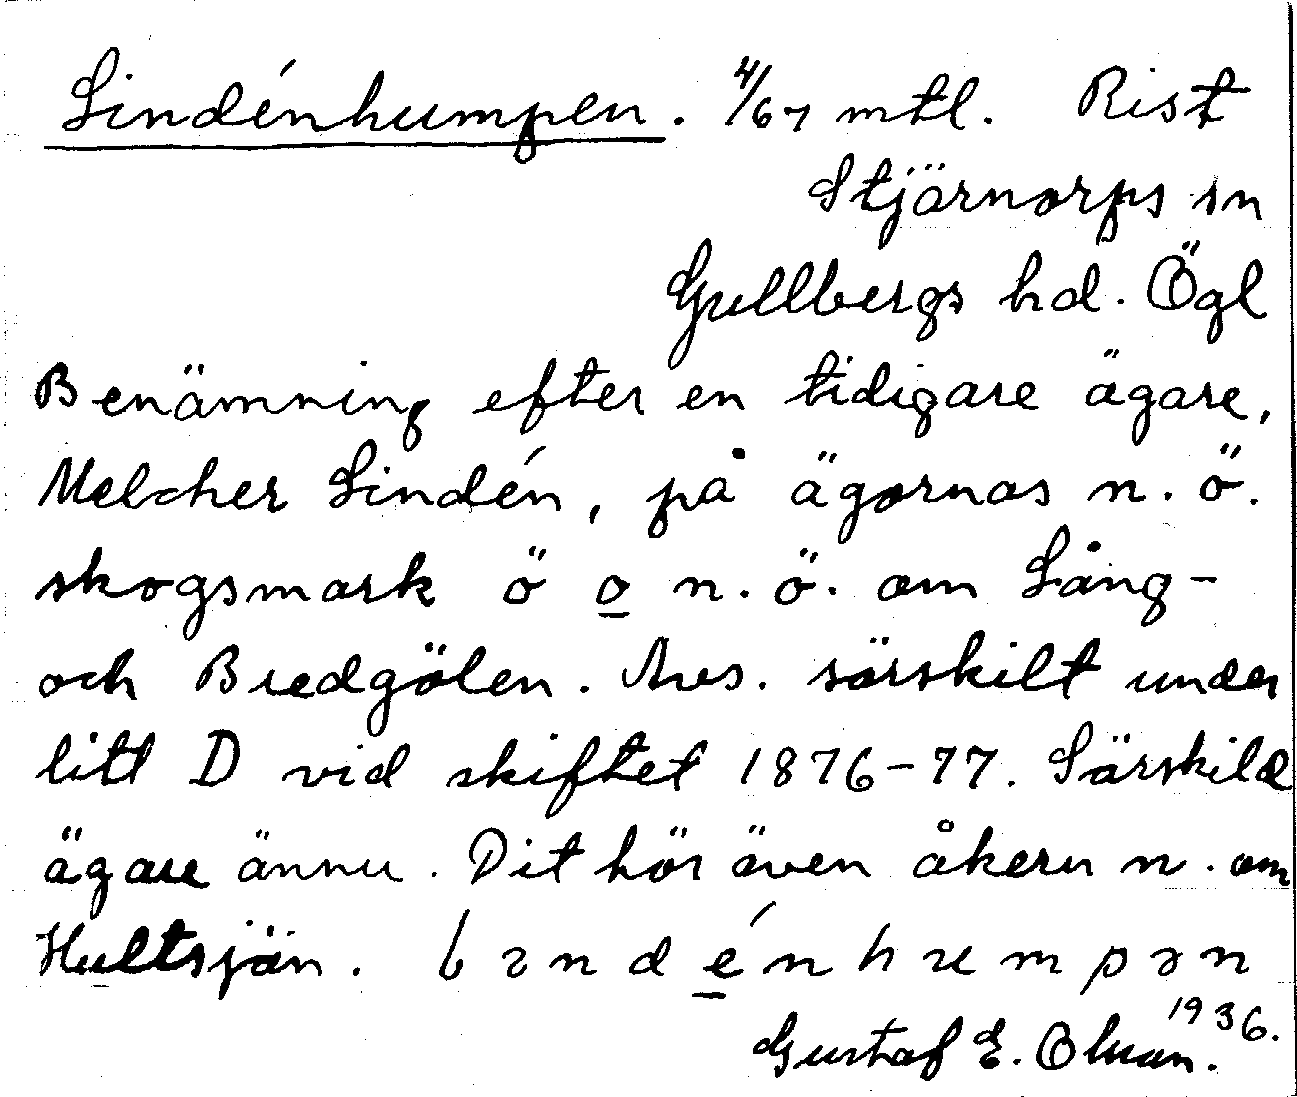 Lindénhumpen. 4/67 mtl. Rist
Stjärnorps sn
Gullbergs hd. Ögl
Benämning efter en tidigare ägare,
Melcher Lindén, på ägornas n.ö.
skogsmark ö o n.ö. om Lång-
och Bredgölen. Avs. särskilt under
litt D vid skiftet 1876-77. Särskild
ägare ännu. Dit hör även åkern n. om
Hultsjön.
Gustaf E. Olsson. 1936.